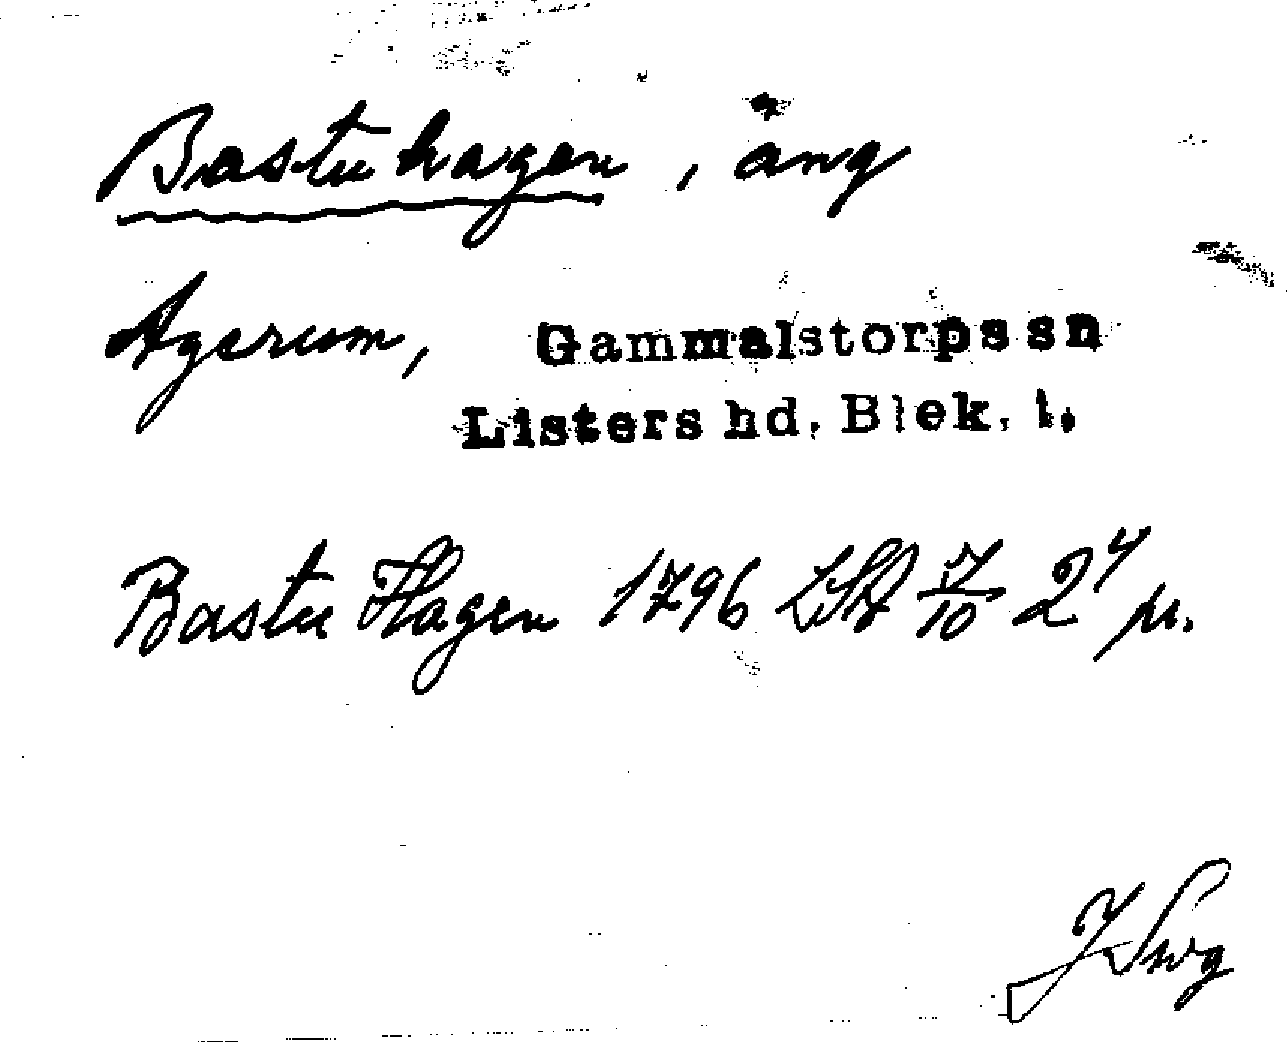 Bastuhagen, äng
Agerum, Gammalstorps sn
Listers hd, Blek. l.
Bastu Hagen 1796 LSA 7/10 2⁴ µ.
J Svg